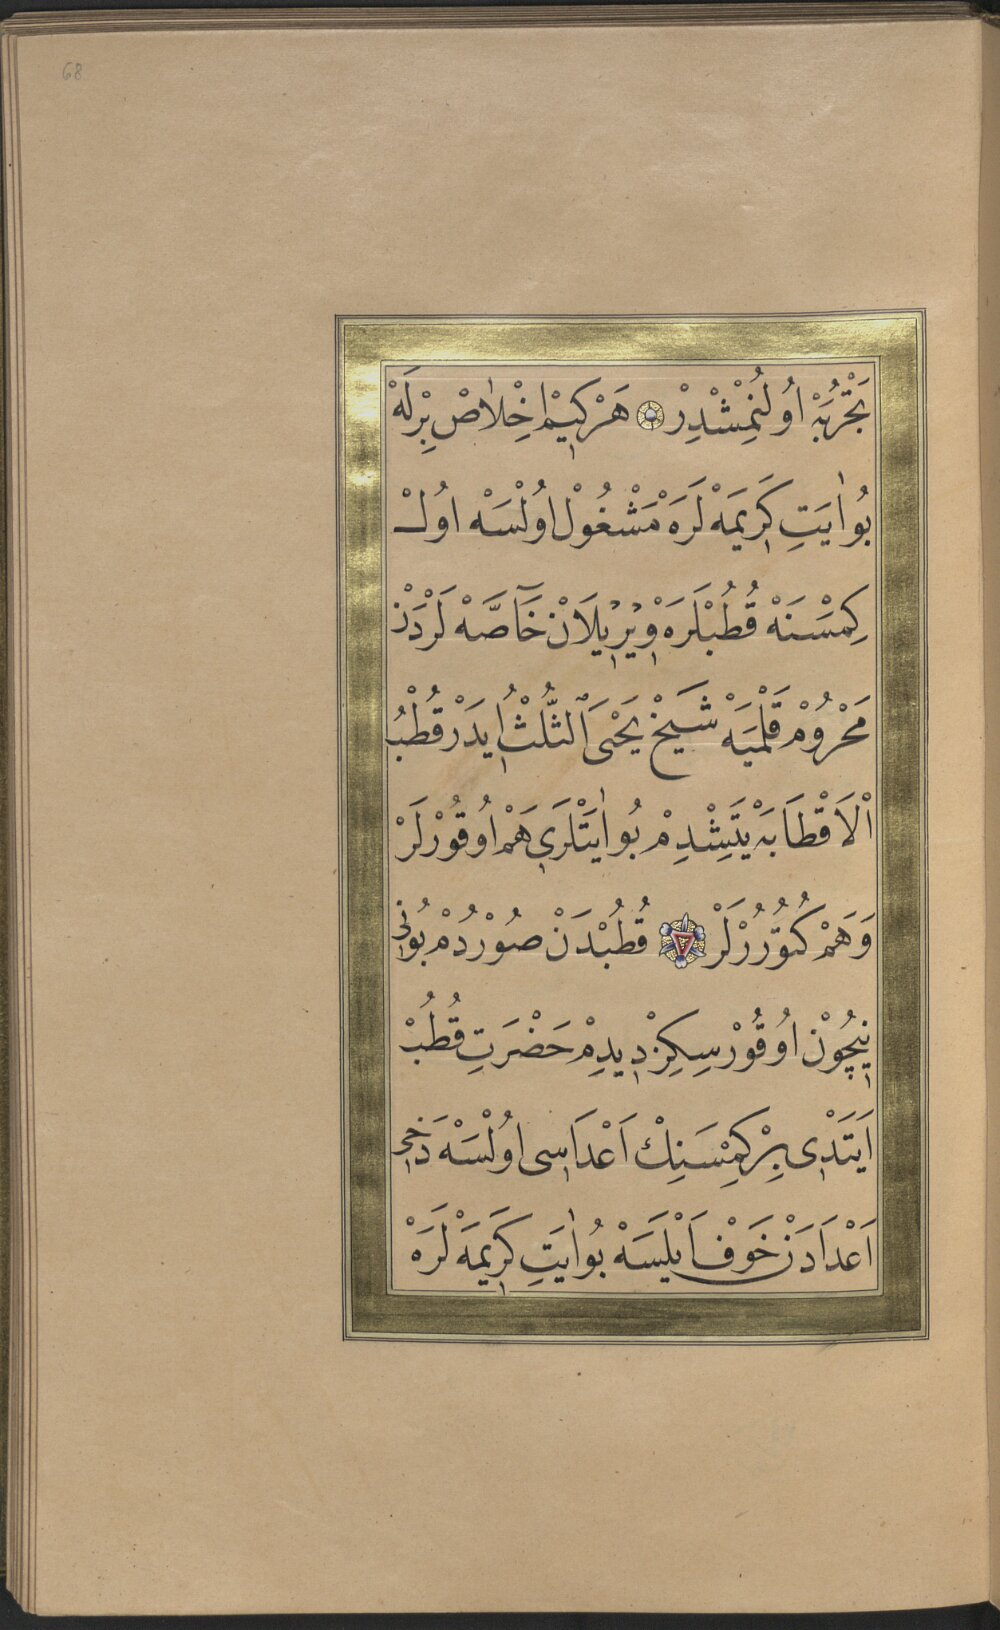 68
تَجْرُبَهْ اوُلُنْمِشْدِرْ هَرْ كِيمْ اِخْلَاصْ بِرْلَهْ
بُو اٰيَتِ كَرِيمَهْ لَرَهْ مَشْغُولْ اوُلْسَهْ اوُلْ
كِمْسَنَهْ قُطُبْلَرَهْ وِيرِيلَانْ خَآصَّهْ لَرْدَنْ
مَحْرُومْ قَلْمَيَهْ شَيخْ يَحْيَى الثُّلُثْ اُيدَرْ قُطْبُ
الْاَقْطَابَهْ يَتِشْدِمْ بُو اٰيَتْلَرِى هَمْ اوُقُورْلَرْ
وَهَمْ كُتوُرُرْلَرْ قُطُبْدَنْ صُورْدُمْ بُونِى
نِيچُونْ اوُقُورْسِكِزْ دِيدِمْ حَضْرَتِ قُطُبْ
اَيتَدْى بِرْ كِمْسَنِكْ اَعْدَاسِى اوُلْسَهْ دَخِى
اَعْدَادَنْ خَوْفْ اَيْلَسَهْ بُو اٰيَتِ كَرِيمَهْ لَرَهْ